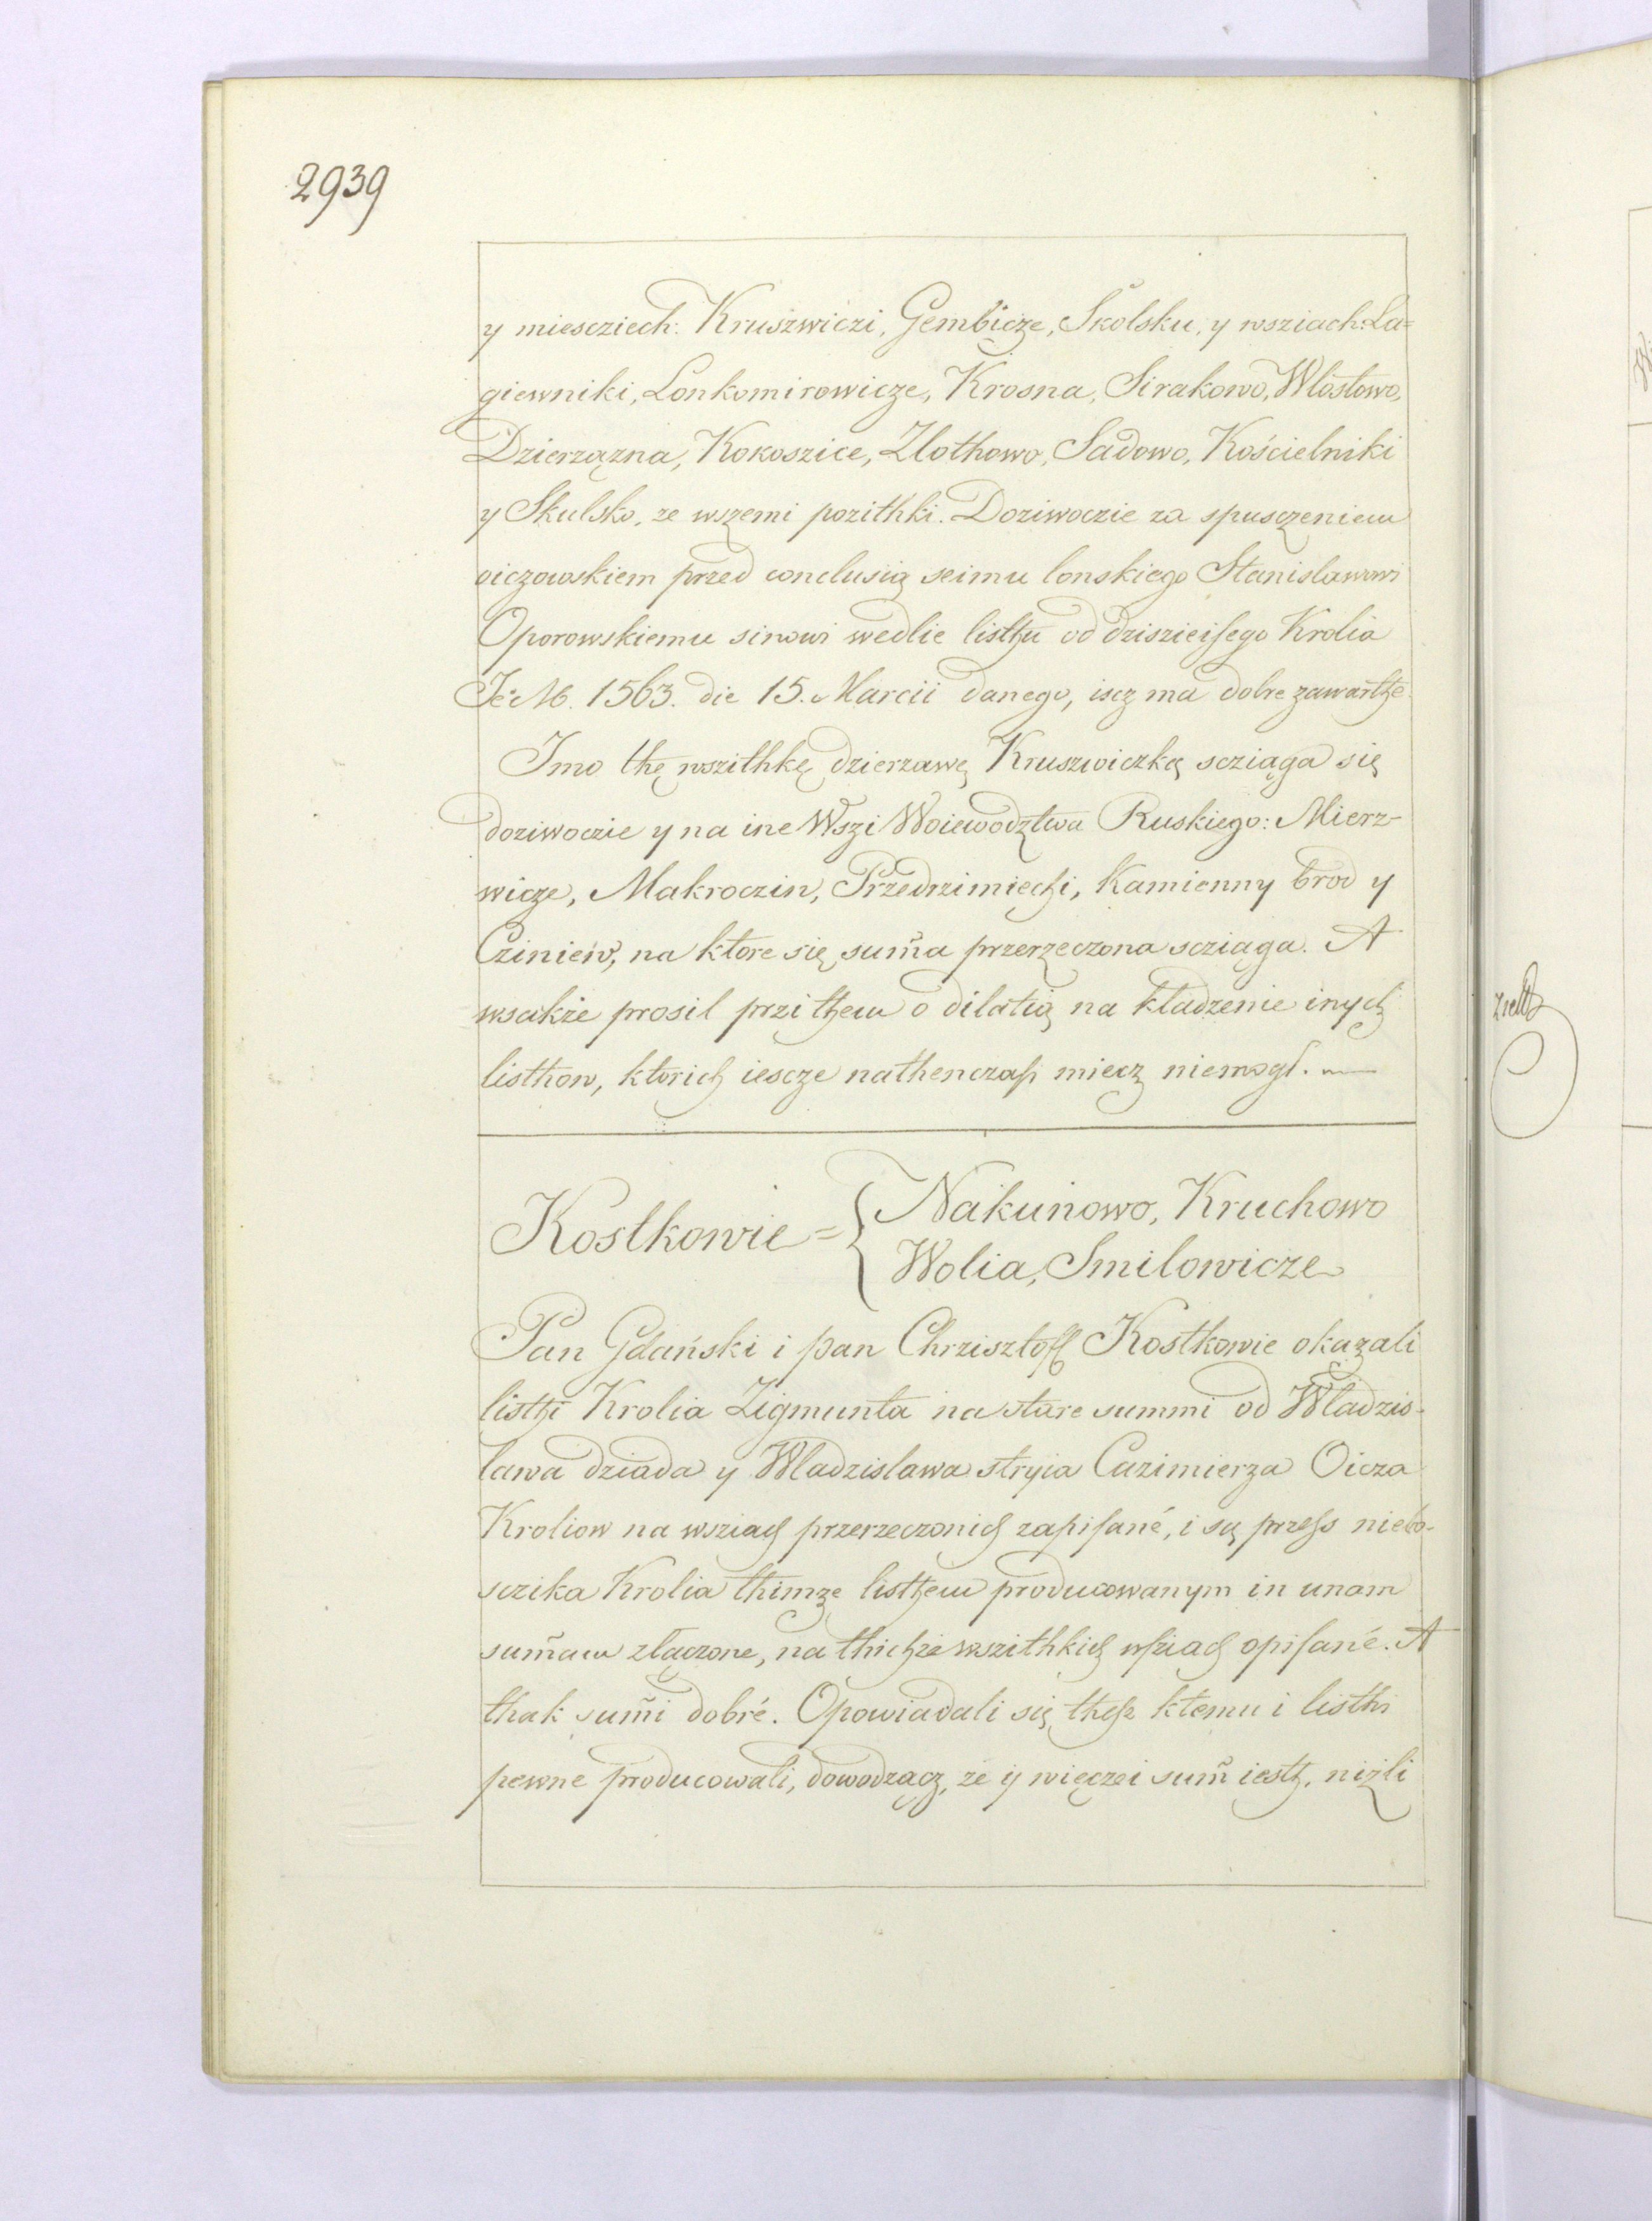 2939
y miesciech: Kruszwiczi, Gembicze, Skolsku, y wsziach: La=
giewniki, Lonkomirowicze, Krosna, Sirakowo, Wlostowo,
Dzierzązna, Kokoszice, Zlothowo, Sadowo, Kościelniki
y Skulsko, ze wszemi pozithki. Doziwoczie za spusczeniem
oiczowskiem przed conclusią seimu lonskiego Stanislawowi
Oporowskiemu sinowi wedlie listhu od dzisieisego Krolia
Je. M. 1563. die 15. Marcii danego, iscz ma dobre zawarthe.
Imo thę wszithkę dzierzawę Kruszwiczkę scziąga się
doziwoczie y na ine Wszi Woiewodztwa Ruskiego: Mierz-
wicze, Makroczin, Przedrzimiechi, Kamienny brod y
Cziniew, na ktore się sum̃a przerzeczona scziąga. A
wsakże prosil przi them o dilatią na kładzenie inych
listhow, ktorich iescze nathenczass miecz niemogł.
Kostkowie = { Nakunowo, Kruchowo
Wolia, Smilowicze
Pan Gdański i pan Chrzisztoff Kostkowie okazali
listhi Krolia Zigmunta na stare summi od Wladzis-
lawa dziada y Wladzislawa stryia Cazimierza Oicza
Kroliow na wsziach przerzeczonich zapisané, i są przess niebo-
sczika Krolia thimze listhem producowanym in unam
sum̃am złączone, na thichże wszithkich wsziach opisané. A
thak sum̃i dobré. Opowiadali się thesz ktemu i listhi
pewne producowali, dowodzącz, ze y więczei sum̃ iesth, niżli